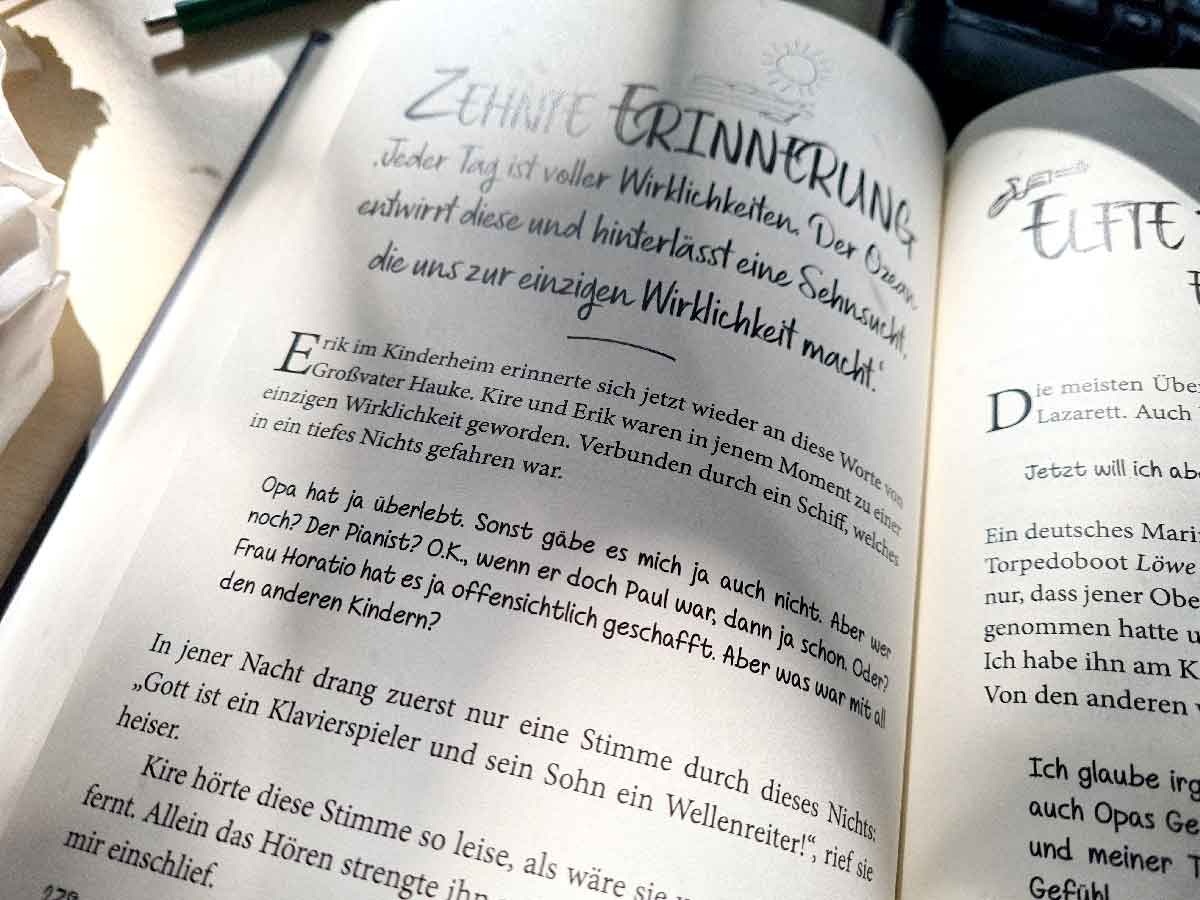 ZEHNTE ERINNERUNG
‚Jeder Tag ist voller Wirklichkeiten. Der Ozean
entwirrt diese und hinterlässt eine Sehnsucht,
die uns zur einzigen Wirklichkeit macht.‘
Erik im Kinderheim erinnerte sich jetzt wieder an diese Worte von
Großvater Hauke. Kire und Erik waren in jenem Moment zu einer
einzigen Wirklichkeit geworden. Verbunden durch ein Schiff, welches
in ein tiefes Nichts gefahren war.
Opa hat ja überlebt. Sonst gäbe es mich ja auch nicht. Aber wer
noch? Der Pianist? O.K., wenn er doch Paul war, dann ja schon. Oder?
Frau Horatio hat es ja offensichtlich geschafft. Aber was war mit all
den anderen Kindern?
In jener Nacht drang zuerst nur eine Stimme durch dieses Nichts:
„Gott ist ein Klavierspieler und sein Sohn ein Wellenreiter!“, rief sie
heiser.
Kire hörte diese Stimme so leise, als wäre sie
fernt. Allein das Hören strengte ihn
mir einschlief.
ELFTE
Die meisten Über
Lazarett. Auch
Jetzt will ich abe
Ein deutsches Mari
Torpedoboot Löwe
nur, dass jener Obe
genommen hatte u
Ich habe ihn am K
Von den anderen
Ich glaube irg
auch Opas Ge
und meiner T
Gefühl